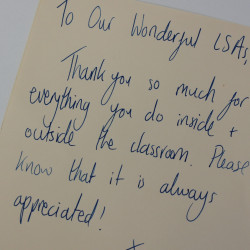 To Our Wonderful LSAs,
Thank you so much for
everything you do inside +
outside the classroom. Please
know that it is always
appreciated!
x